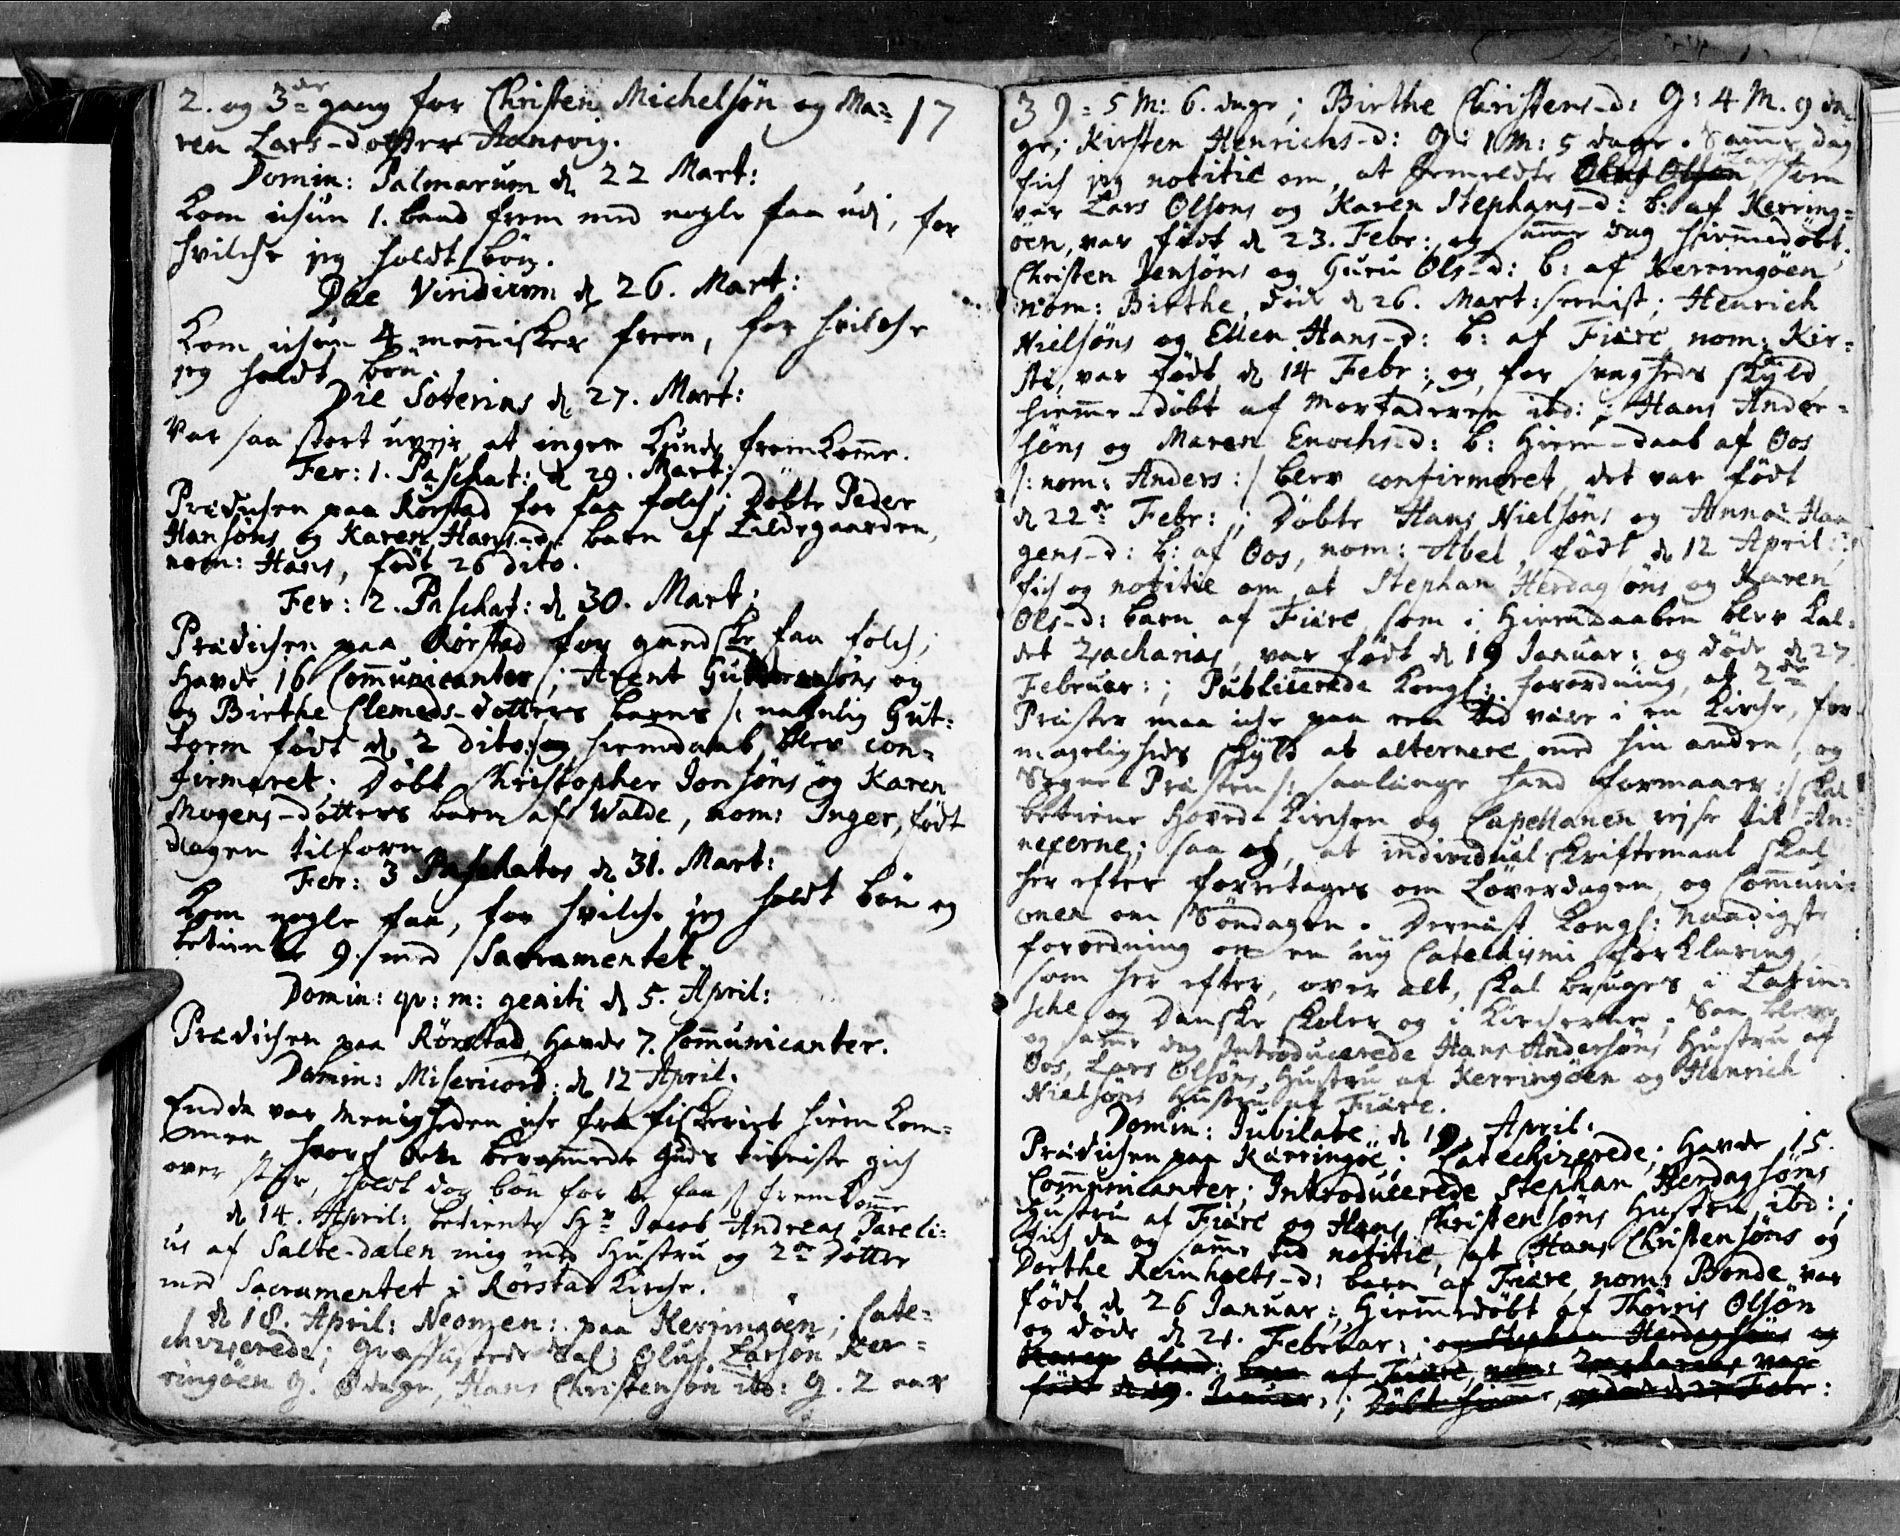 2. og 3de gang for Christen Michelsön og Ma= 17
ren Lars-dotter Hansvig.
Domin: Palmarum d. 22 Mart:
Kom ichun 1. baad frem med nogle faa udi, for
hvilche jeg holdt bön.
Die Viridium d. 26. Mart:
Kom ichun 4 mennisker frem, for hvilche
jeg holdt bön.
Die Soterias d. 27. Mart:
Var saa stort uvejr at ingen kunde fremkomme.
Fer: 1. Paschat: d. 29. Mart:
Prædichen paa Rörstad for faa folch; Döbte Peder
Hansöns og Karen Hans-d: barn af Lildegaarden,
nom: Hans, födt 26 dito.
Fer: 2. Paschat: d. 30. Mart:
Prædichen paa Rörstad for gandske faa folch;
Havde 16 Communicanter; Arent Guttormsöns og
og Birthe Clemeds-dotters barns /: nafnlig Gut:
torm födt d. 2 dito :/ og hiemdaab blev con=
firmeret; Döbt Christopher Jonsöns og Karen
Mogens-dotters barn af Walde, nom: Inger, födt
dagen tilforn.
Fer: 3 Paschatos d. 31. Mart:
Kom nogle faa, for hvilche jeg holdt bön og
betiente 9. med Sacramentet.
Domin: qv: m: geniti d. 5. April:
Prædichen paa Rörstad, Havde 7. Communicanter.
Domin: Misericord: d. 12 April.
Endda var Menigheden iche fra fiskeriet hiem kom=
men, hvorf den berammede Guds tieniste gich
over styr, holdt dog bön for de faa fremkomne
d. 14. April: betiente Hr. Jacob Andreas Pareli:
us af Salte-dalen mig med Hustru og 2de Döttre
med Sacramentet i Rörstad Kirche.
d. 18. April: Neomen: paa Kerringöen; Cate=
chizerede; Græsfæstede Sal: Oluf Larsön Ker=
ringöen g. 8 dage, Hans Christensön ibd: g. 2 aar
39 = 5 M: 6. dage; Birthe Christens-d: g: 4 M. 9 da=
ge; Kirsten Henrichs-d: g: 1 M: 5 dage. Samme dag
fich jeg notitie om, at bemeldte Oluf Olsön Larsön som
var Lars Olsöns og Karen Stephans-d: b: af Kerring=
öen, var födt d. 23. Febr: og samme dag hiemmedöbt;
Christen Jensöns og Guru Ols-d: b: af Kerringöen
nom: Birthe, föde d. 26. Mart: sernist; Henrich
Nielsöns og Ellen Hans-d: b: af Fiære nom: Kir=
sti, var födt d. 14 Febr:, og for svagheds skyld
hiemme-döbt af Morfaderen ibd:; Hans Ander=
söns og Maren Enochs-d: b: Hiem-daab af Oos
/: nom: Anders :/ blev confirmeret, det var födt
d. 22de Febr:; Döbte Hans Nielsöns og Anna Haa
gens-d: b: af Oos, nom: Abel, födt d. 12 April:;
fich og notitie om at Stephan Herdagsöns og Karen
Ols-d: barn af Fiære, som i Hiemdaaben blev kal=
det Zacharias, var födt d. 19 Januar: og döde d. 27
Februar:; Publicerede Kongl: forordning, at 2de
Præster maa iche paa een tid være i en Kirche, for
mageligheds skyld at alternere med hin anden, og
Sogne Præsten /: saalænge hand formaaer :/ skal
betiene Hoved-Kirchen og Capellanen rejse til An=
nexerne; saa og, at individual skriftemaal skal
her efter foretages om Löverdagen, og Communi=
onen om Söndagen. Dernæst Kongl: Naadigste
forordning om en ny Catechismi Forklaring,
som her efter, over alt, skal bruges i Latin=
sche og Danske skoler og i Kircherne; Saa bleve
og samme dag Introducerede Hans Andersöns Hustru af
Oos, Lars Olsöns Hustru af Kerringöen og Henrich
Nielsöns Hustru af Fiære.
Domin: Jubilate d. 19. April:
Prædichen paa Kerringöe; Catechizerede; Havde 15.
Communicanter; Introducerede Stephan Herdagsöns
Hustru af Fiære og Hans Christensöns Hustru ibd:;
Fich da og samme tid notitie, at Hans Christensöns og
Dorthe Reinholts-d: barn af Fiære, nom: Bonde, var
födt d. 26 Januar:, Hiemmedöbt af Thörris Olsön
og döde d. 21. Februar:; og Stephan Herdagsöns og
Karen Olsd: barn af Fiære, nom: Zacharias var
födt d. 19. Januar:; Döbt hiemme, og död d. 27 Febr: